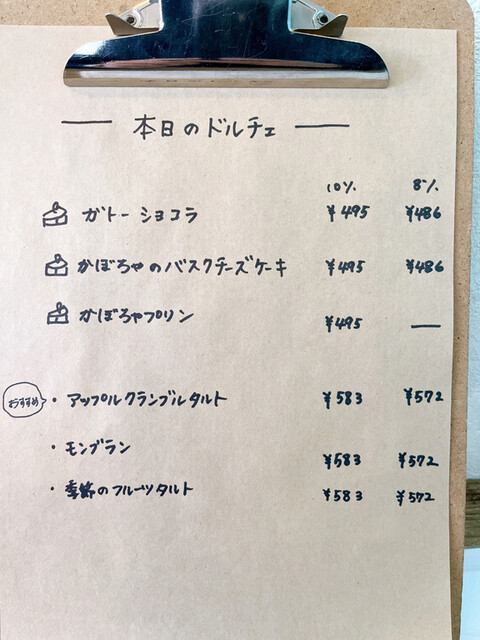 本日のドルチェ
10% 8%
ガトーショコラ ¥495 ¥486
かぼちゃのバスクチーズケーキ ¥495 ¥486
かぼちゃプリン ¥495 —
おすすめ ・アップルクランブルタルト ¥583 ¥572
・モンブラン ¥583 ¥572
・季節のフルーツタルト ¥583 ¥572